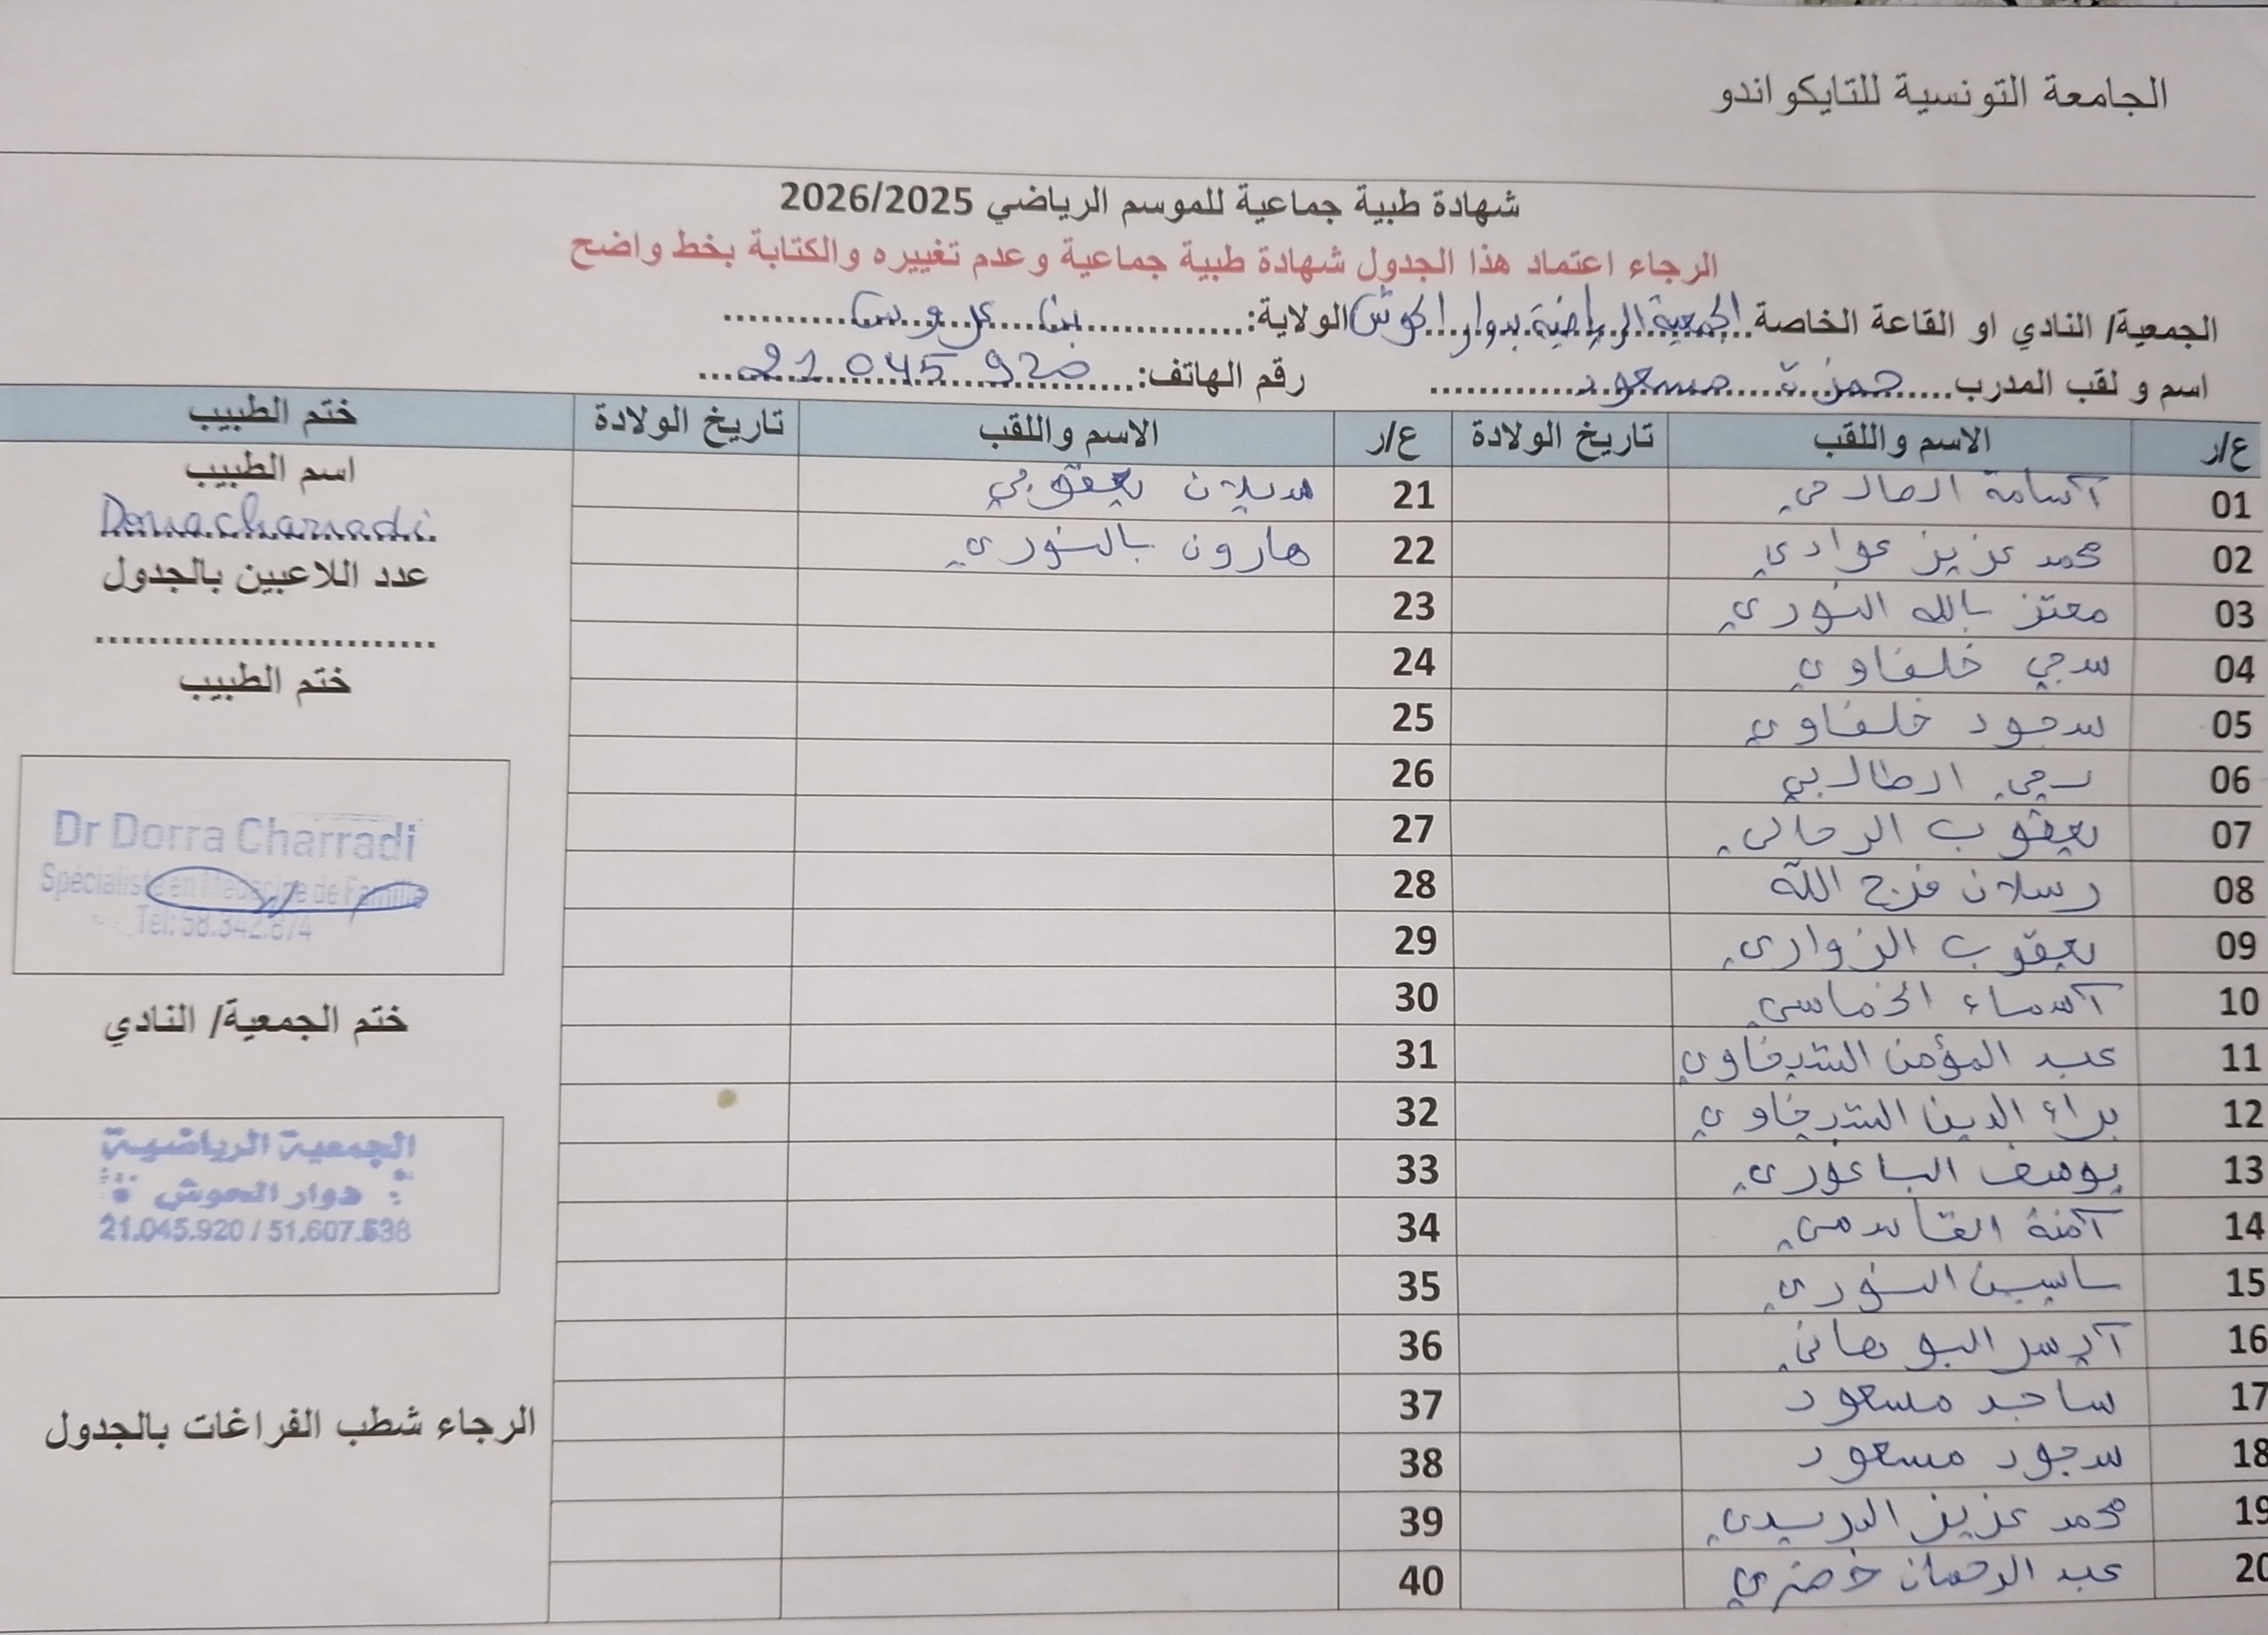 الجامعة التونسية للتايكواندو
شهادة طبية جماعية للموسم الرياضي 2026/2025
الرجاء اعتماد هذا الجدول شهادة طبية جماعية وعدم تغييره والكتابة بخط واضح
الجمعية/ النادي او القاعة الخاصة الجمعية الرياضية بدوار الحوش الولاية: بن عروس
اسم و لقب المدرب حمزة مسعود رقم الهاتف: 21 045 920
ع/ر الاسم واللقب تاريخ الولادة ع/ر الاسم واللقب تاريخ الولادة ختم الطبيب
01 أسامة الصالحي 21 يعقوبي
02 محمد عزيز عوادي 22 هارون بالنوري
03 معتز بالله النوري 23
04 سجي خلفاوي 24
05 سجود خلفاوي 25
06 الطالبي 26
07 يعقوب الرحالي 27
08 رسلان فرج الله 28
09 يعقوب الزواري 29
10 أسماء الخماسي 30
11 عبد المؤمن 31
12 براء الدين 32
13 يوسف الباغوري 33
14 آمنة القاسمي 34
15 النوري 35
16 36
17 ساجد مسعود 37
18 سجود مسعود 38
19 محمد عزيز الدريدي 39
20 عبد الرحمان خضري 40
اسم الطبيب
Dorra charradi
عدد اللاعبين بالجدول
ختم الطبيب
Dr Dorra Charradi
Spécialiste en Médecine de Famille
Tel: 58.342.874
ختم الجمعية/ النادي
الجمعية الرياضية
دوار الحوش
21.045.920 / 51.607.638
الرجاء شطب الفراغات بالجدول